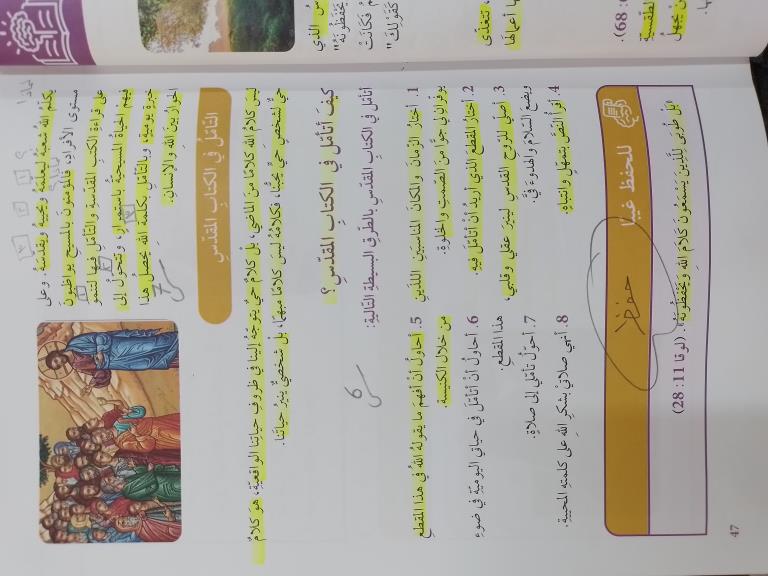 يكلّم اللهُ شعبَهُ ليعلّمَهُ ويحييهُ ويقدّسَهُ. وعلى
مستوى الأفرادِ، فالمؤمنون بالمسيح يواظبونَ
على قراءةِ الكتبِ المقدّسة والتأمّلِ فيها لتنموَ
فيهم الحياةُ المسيحيّةُ باستمرارٍ، وتتحولَ إلى
خبرةٍ يوميّةٍ، وبالتّأملِ بكلمةِ اللهِ يحصلُ هذا
الحوارُ بينَ اللهِ والإنسانِ.
التّأمّلُ في الكتابِ المقدّسِ
ليسَ كلامُ اللهِ كلامًا منَ الماضي، بل كلامٌ حيٌّ يتوجّهُ إلينا في ظروفِ حياتِنا الواقعيّةِ، هو كلامٌ
حيٌّ لشخصٍ حيٍّ يحبُّنا، فكلامُهُ ليسَ كلامًا مبهمًا، بل شخصيٌّ ينيرُ حياتَنا.
كيفَ أتأمّلُ في الكتابِ المقدّسِ؟
أتأمّلُ في الكتابِ المقدّسِ بالطّرقِ البسيطةِ التّاليةِ:
1. أختارُ الزّمانَ والمكانَ المناسبينِ اللّذينِ
يوفّرانِ لي جوًّا منَ الصّمتِ والخلوةِ.
2. أختارُ المقطعَ الّذي أريدُ أنْ أتأمّلَ فيهِ.
3. أصلّي للرّوحِ القدسِ لينيرَ عقلي وقلبي،
ويضعَ السّلامَ والهدوءَ فيَّ.
4. أقرأُ النّصَّ بتمهّلٍ وانتباهٍ.
5. أحاولُ أنْ أفهمَ ما يقولُهُ اللهُ في هذا المقطعِ
من خلالِ الكنيسةِ
6. أحاولُ أنْ أتأمّلَ في حياتي اليوميّةِ في ضوءِ
هذا المقطعِ.
7. أحوّلُ تأمّلي إلى صلاةٍ.
8. أنهي صلاتي بشكرِ اللهِ على كلمتِهِ المحييةِ.
للحفظ غيبًا
حفظ
"بل طوبى للّذينَ يسمعونَ كلامَ اللهِ ويحفظونَهُ". (لوقا 11: 28)
47